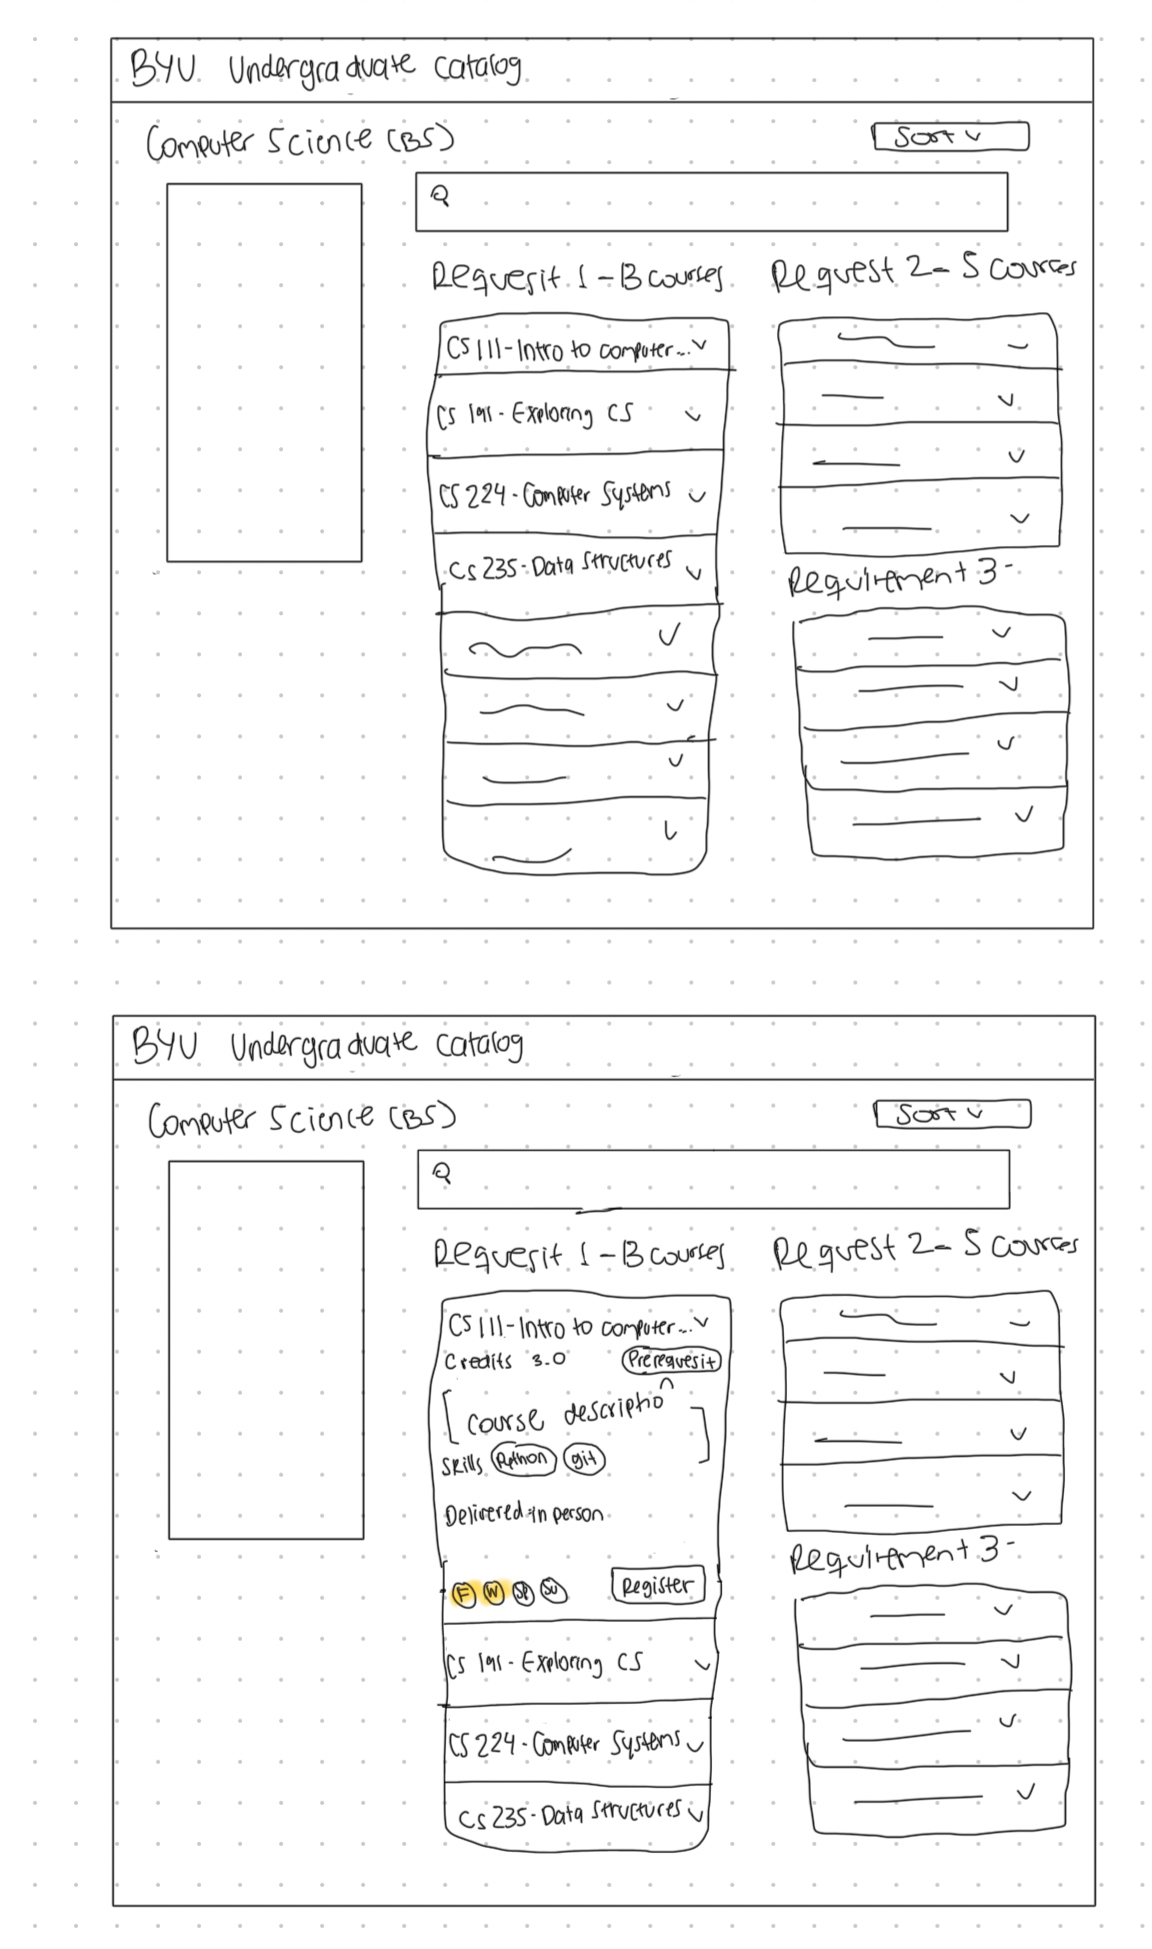 BYU Undergraduate Catalog
Computer Science (BS)
Sort
Requesit 1 - 13 courses
Request 2 - 5 cources
CS 111 - Intro to computer...
CS 191 - Exploring CS
CS 224 - Computer Systems
CS 235 - Data Structures
Requirement 3 -
BYU Undergraduate Catalog
Computer Science (BS)
Sort
Requesit 1 - 13 courses
Request 2 - 5 cources
CS 111 - Intro to computer...
Credits 3.0 Prerequesit
[course description]
Skills Python git
Delivered: in person
F W SP SU Register
CS 191 - Exploring CS
CS 224 - Computer Systems
CS 235 - Data Structures
Requirement 3 -